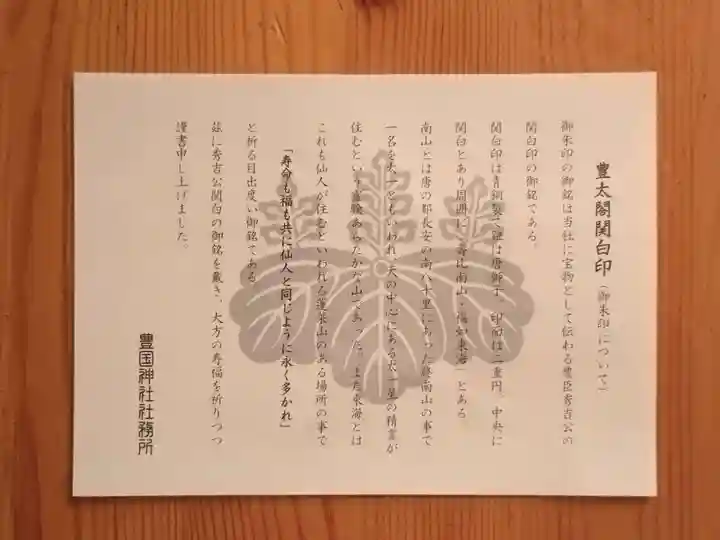 豊太閤関白印（御朱印について）
御朱印の御銘は当社に宝物として伝わる豊臣秀吉公の
関白印の御銘である。
関白印は青銅製で鈕は唐獅子、印面は二重円、中央に
関白とあり周囲に「寿比南山・福如東海」とある。
南山とは唐の都長安の南八十里にあった終南山の事で
一名を太一ともいわれ、天の中心にある太一星の精霊が
住むという霊験あらたかな山であった。また東海とは
これも仙人が住むといわれる蓬莱山のある場所の事で
「寿命も福も共に仙人と同じように永く多かれ」
と祈る目出度い御銘である。
茲に秀吉公関白の御銘を戴き、大方の寿福を祈りつつ
謹書申し上げました。
豊国神社社務所